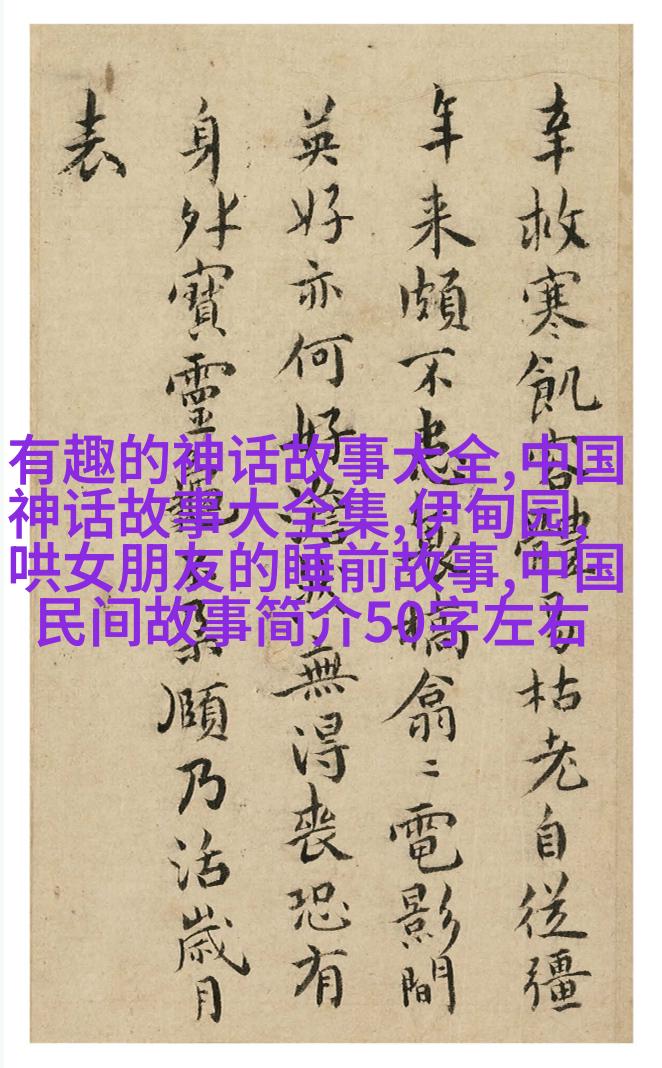 幸救寒飢容體易枯老自從彊
年来頗不患敢槁翕〻電影間
英好亦何好無得喪恐有
身外寶靈龜不朶頤乃活歲月
表
有趣的神话故事大全,中国
神话故事大全集,伊甸园,
哄女朋友的睡前故事,中国
民间故事简介50字左右